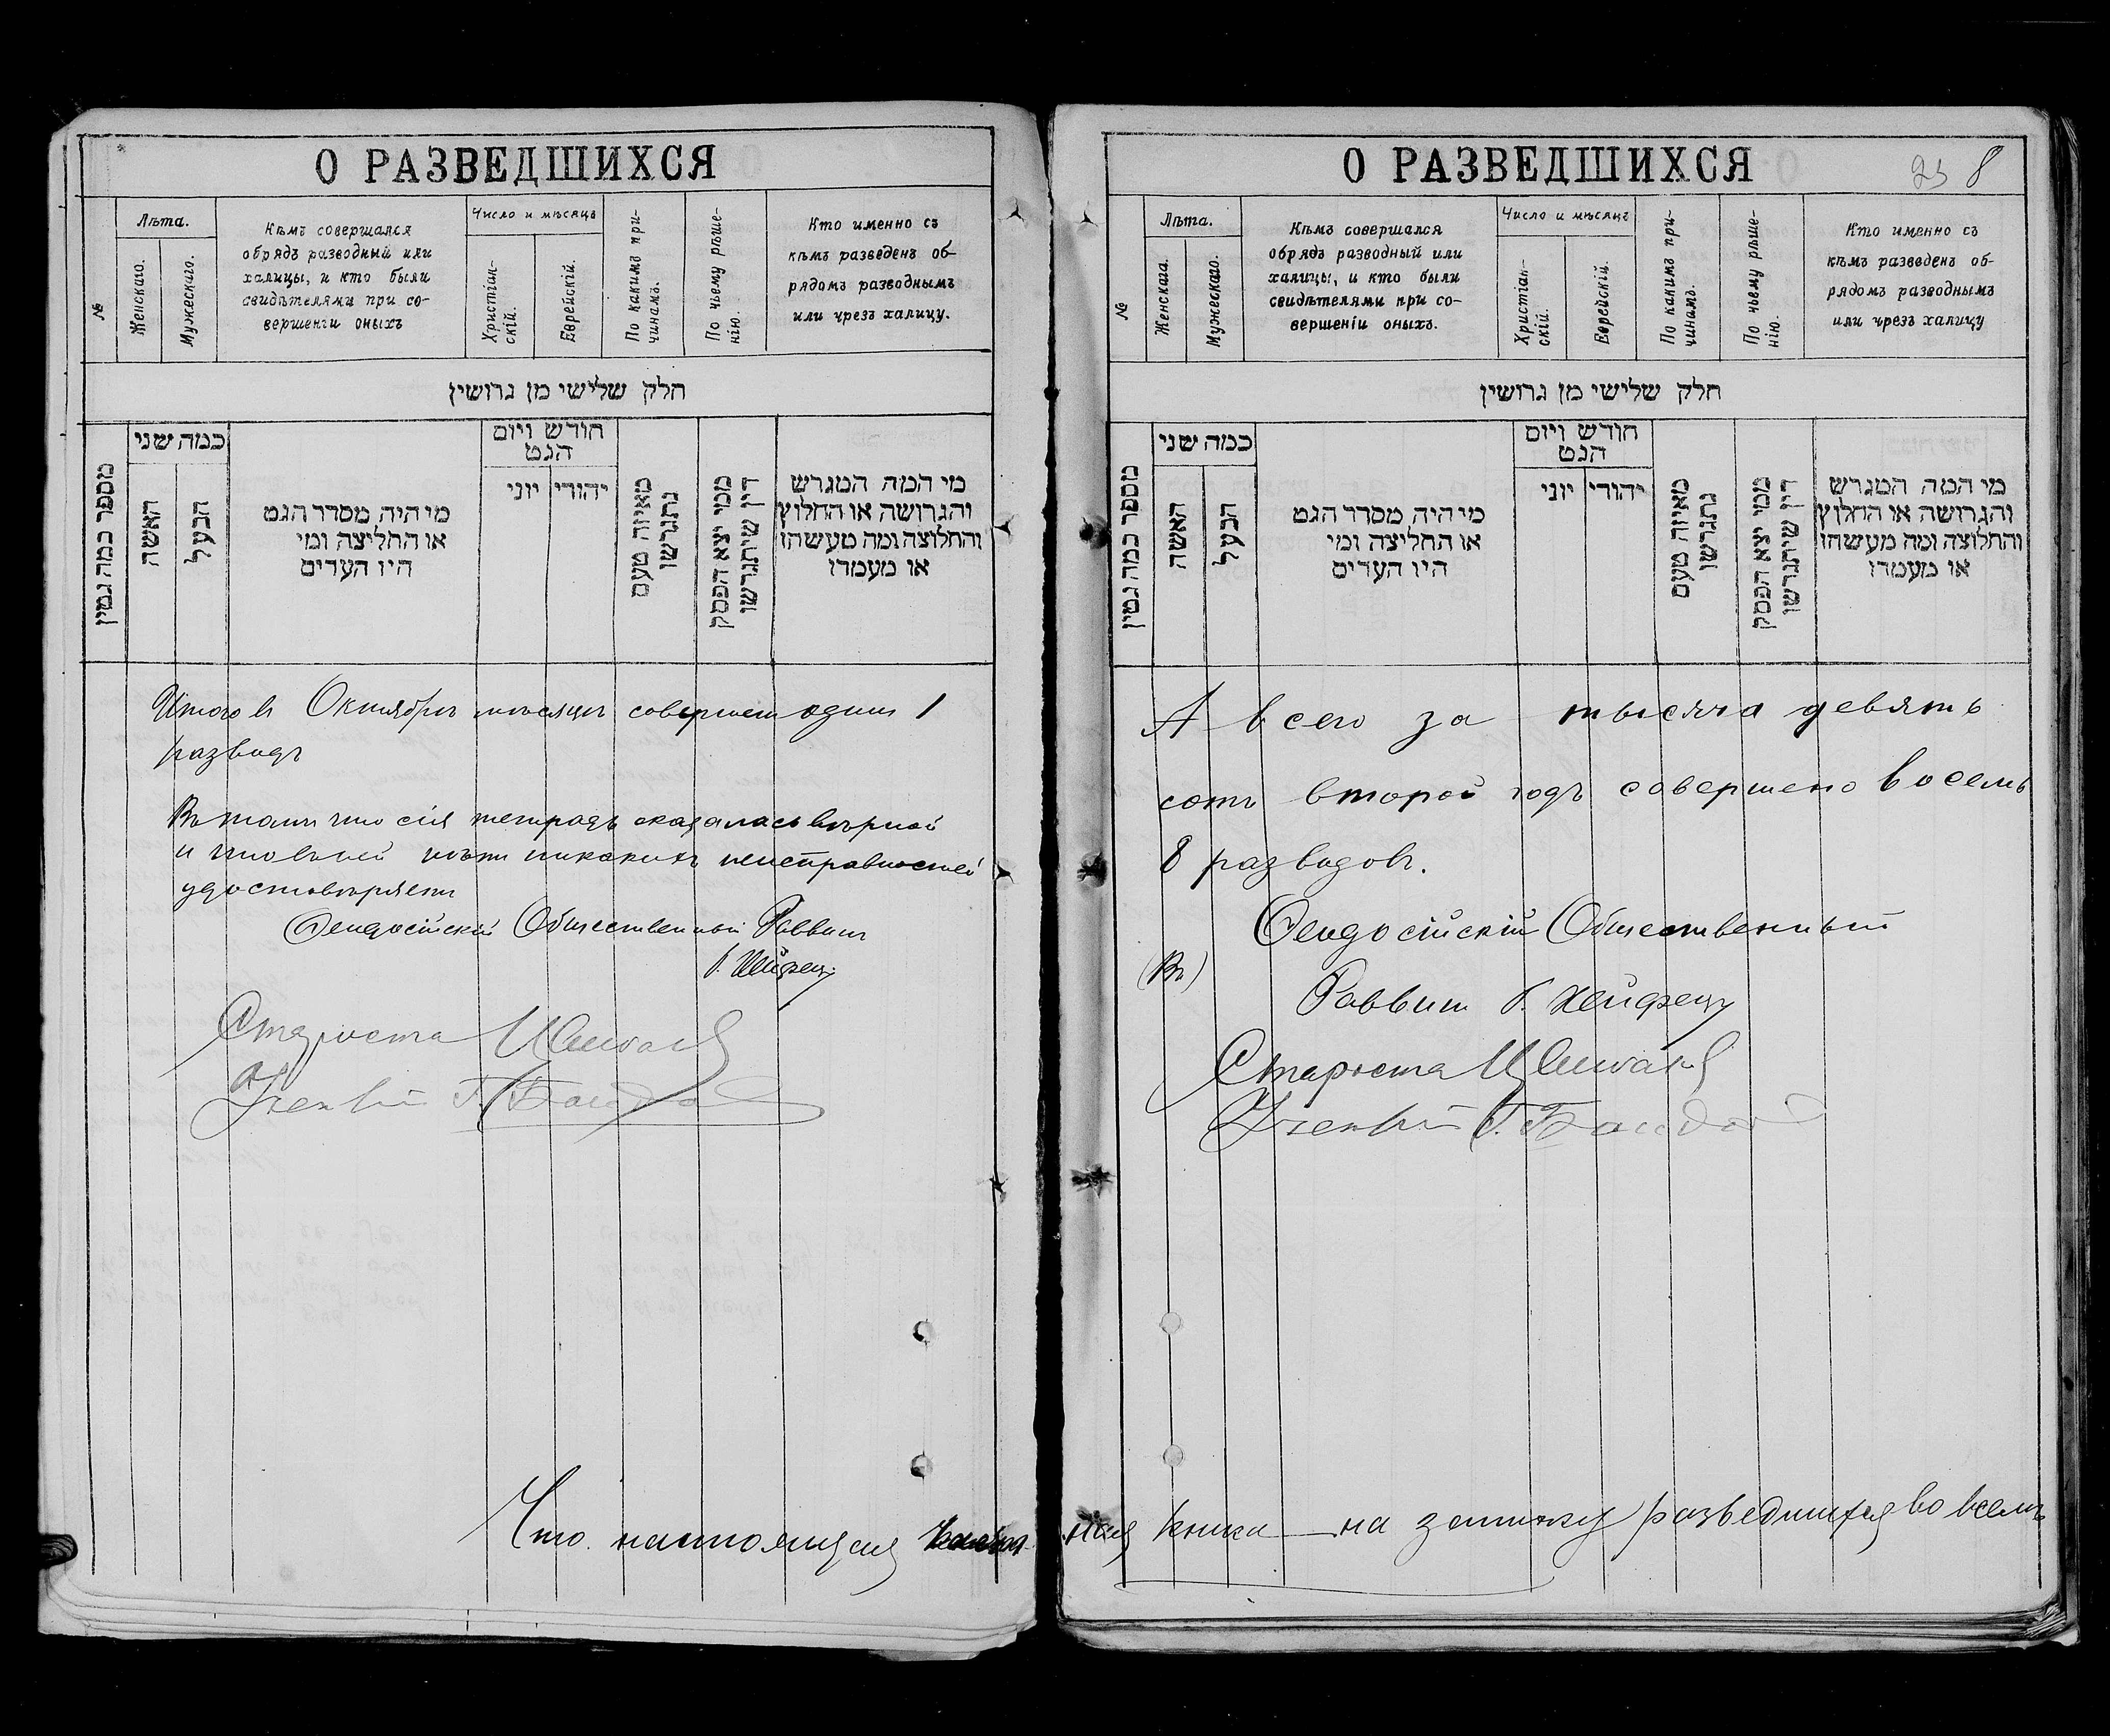 О РАЗВЕДШИХСЯ
№
Лѣта.
Женскаго.
Мужескаго.
Кѣмъ совершался
обрядъ разводный или
халицы, и кто были
свидѣтелями при со-
вершенги оныхъ
Число и мѣсяцъ
Христіан-
скій.
Еврейскій.
По какимъ при-
чинамъ.
По чьему рѣше-
нію.
Кто именно съ
кѣмъ разведенъ об-
рядомъ разводнымъ
или чрезъ халицу.
חלק שלישי מן גרושין
מספר כמה גטין
כמה שני
האשה
הבעל
מי היה מסדר הגט
או החליצה ומי
היו העדים
חודש ויום
הגט
יהודי
יוני
מאיזה טעם
נתגרשו
ממי יצא הפסק
דין שיתגרשו
מי המה המגרש
והגרושה או החלוץ
והחלוצה ומה מעשהו
או מעמדו
Итого въ Октябрѣ мѣсяцѣ совершен один 1
разводъ
Въ томъ что сія тетрадь оказалась вѣрной
и что въ ней нѣтъ никакихъ неисправностей
удостовѣряетъ
Феодосійскій Общественный Раввинъ
Г. Хейфецъ
Староста
Г.
Что настоящая
О РАЗВЕДШИХСЯ
23 8
№
Лѣта.
Женскаго.
Мужескаго.
Кѣмъ совершался
обрядъ разводный или
халицы, и кто были
свидѣтелями при со-
вершеніи оныхъ.
Число и мѣсяцъ
Христіан-
скій.
Еврейскій.
По какимъ при-
чинамъ.
По чьему рѣше-
нію.
Кто именно съ
кѣмъ разведенъ об-
рядомъ разводнымъ
или чрезъ халицу
חלק שלישי מן גרושין
מספר כמה גטין
כמה שני
האשה
הבעל
מי היה מסדר הגט
או החליצה ומי
היו העדים
חודש ויום
הגט
יהודי
יוני
מאיזה טעם
נתגרשו
ממי יצא הפסק
דין שיתגרשו
מי המה המגרש
והגרושה או החלוץ
והחלוצה ומה מעשהו
או מעמדו
А всего за тысяча девять
сотъ второй годъ совершено восемь
8 разводовъ.
Феодосійскій Общественный
(Въ)
Раввинъ Г. Хейфецъ
Староста
Г.
книга на записку разведшихся во всемъ